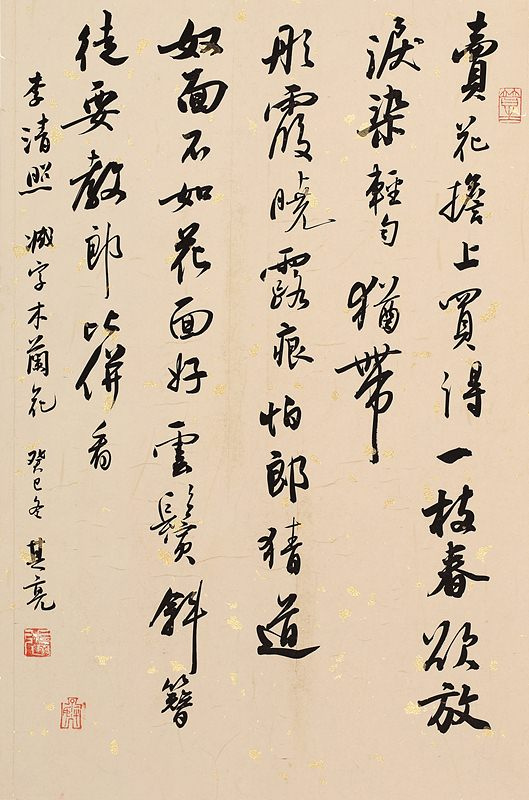 賣花擔上買得一枝春欲放
淚染輕勻猶帶
彤霞曉露痕怕郎猜道
奴面不如花面好雲鬢斜簪
徒要教郎比併看
李清照 減字木蘭花 癸巳冬 其亮